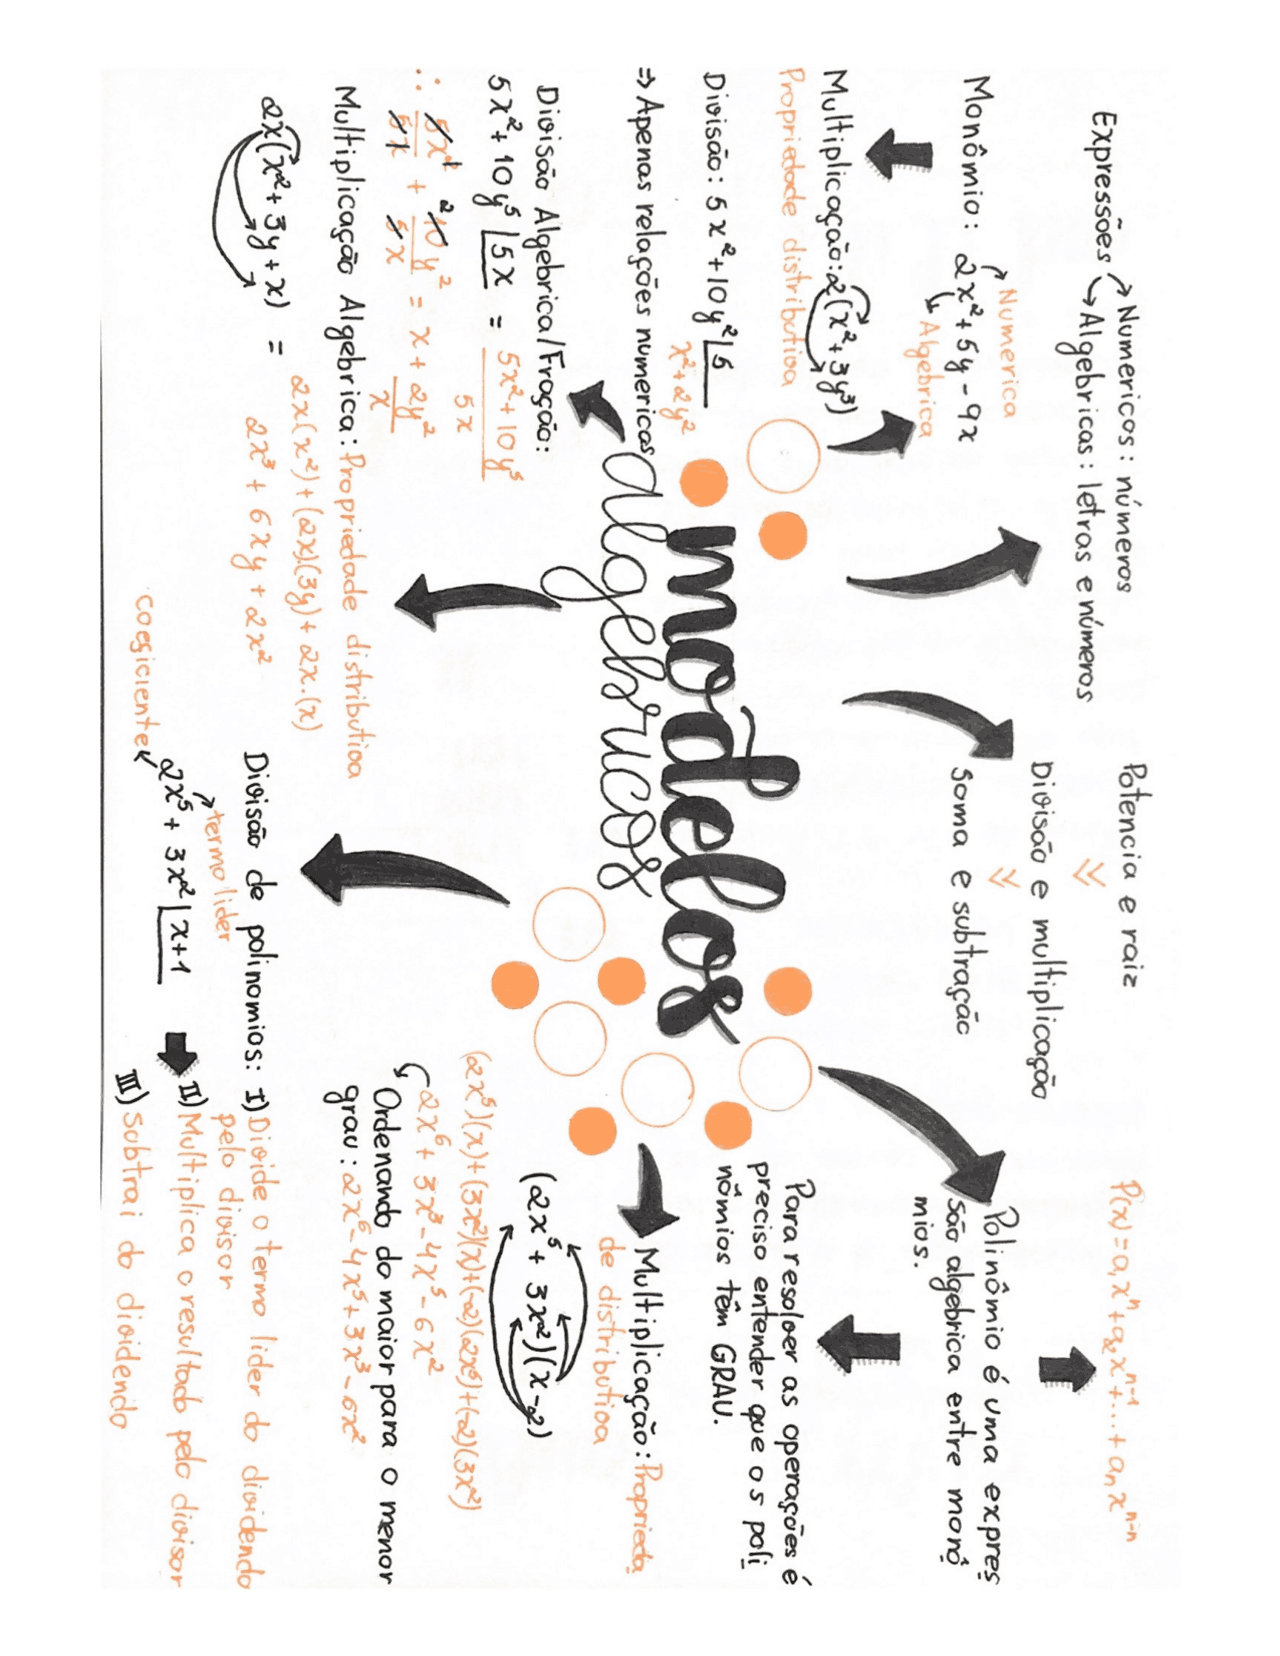 Expressões → Numericos: números
↘ Algebricas: letras e números
Monômio: 2x² + 5y - 9x
Numerica
Algebrica
Multiplicação: 2(x² + 3y³)
Propriedade distributiva
Divisão: 5x² + 10y² |5
x² + 2y²
⇒ Apenas relações numericas
Divisão Algebrica/Fração:
5x² + 10y⁵ |5x = 5x² + 10y⁵
5x
∴ 5x² / 5x + 10y² / 5x = x + 2y² / x
Multiplicação Algebrica: Propriedade distributiva
2x(x² + 3y + x) =
2x(x²) + (2x)(3y) + 2x.(x)
2x³ + 6xy + 2x²
modelos
algebricos
Potencia e raiz
>>
Divisão e multiplicação
>>
Soma e subtração
P(x) = a₁xⁿ + a₂xⁿ⁻¹ + ... + aₙxⁿ⁻ⁿ
Polinômio é uma expres
são algebrica entre monô
mios.
Para resolver as operações é
preciso entender que os poli
nômios têm GRAU.
Multiplicação: Proprieda
de distributiva
(2x⁵ + 3x²)(x - 2)
(2x⁵)(x) + (3x²)(x) + (-2)(2x⁵) + (-2)(3x²)
2x⁶ + 3x³ - 4x⁵ - 6x²
Ordenando do maior para o menor
grau: 2x⁶ - 4x⁵ + 3x³ - 6x²
Divisão de polinomios:
termo lider
coeficiente
2x⁵ + 3x² |x + 1
I) Divide o termo lider do dividendo
pelo divisor
II) Multiplica o resultado pelo divisor
III) Subtrai do dividendo